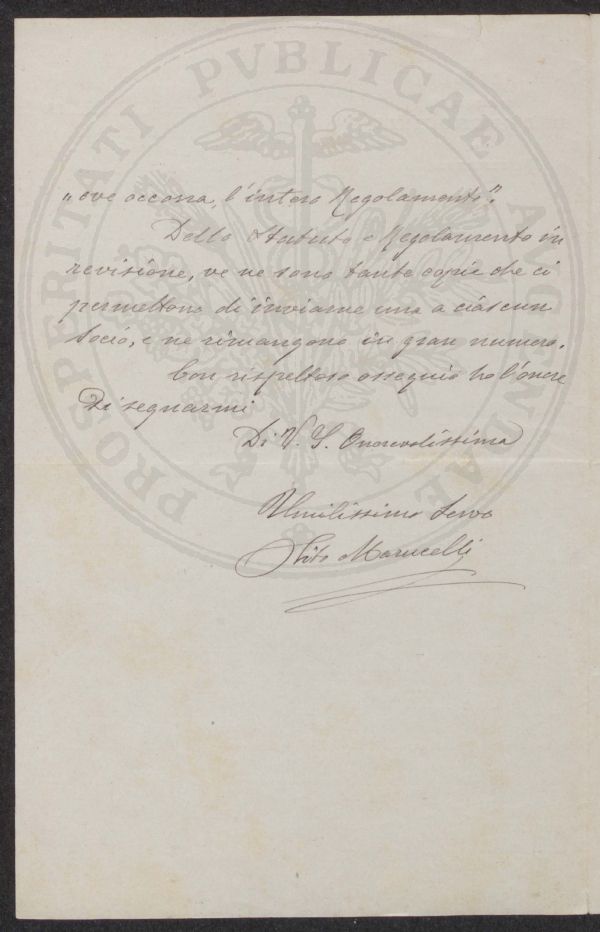 PROSPERITATI PVBLICAE AVGENDAE
„ove occorra, l'intero Regolamento".
Dello Statuto e Regolamento in
revisione, ve ne sono tante copie che ci
permettono di inviarne una a ciascun
Socio, e ne rimangono in gran numero.
Con rispettoso ossequio ho l'onore
di segnarmi
Di V. S. Onorevolissima
Umilissimo Servo
Tito Marucelli